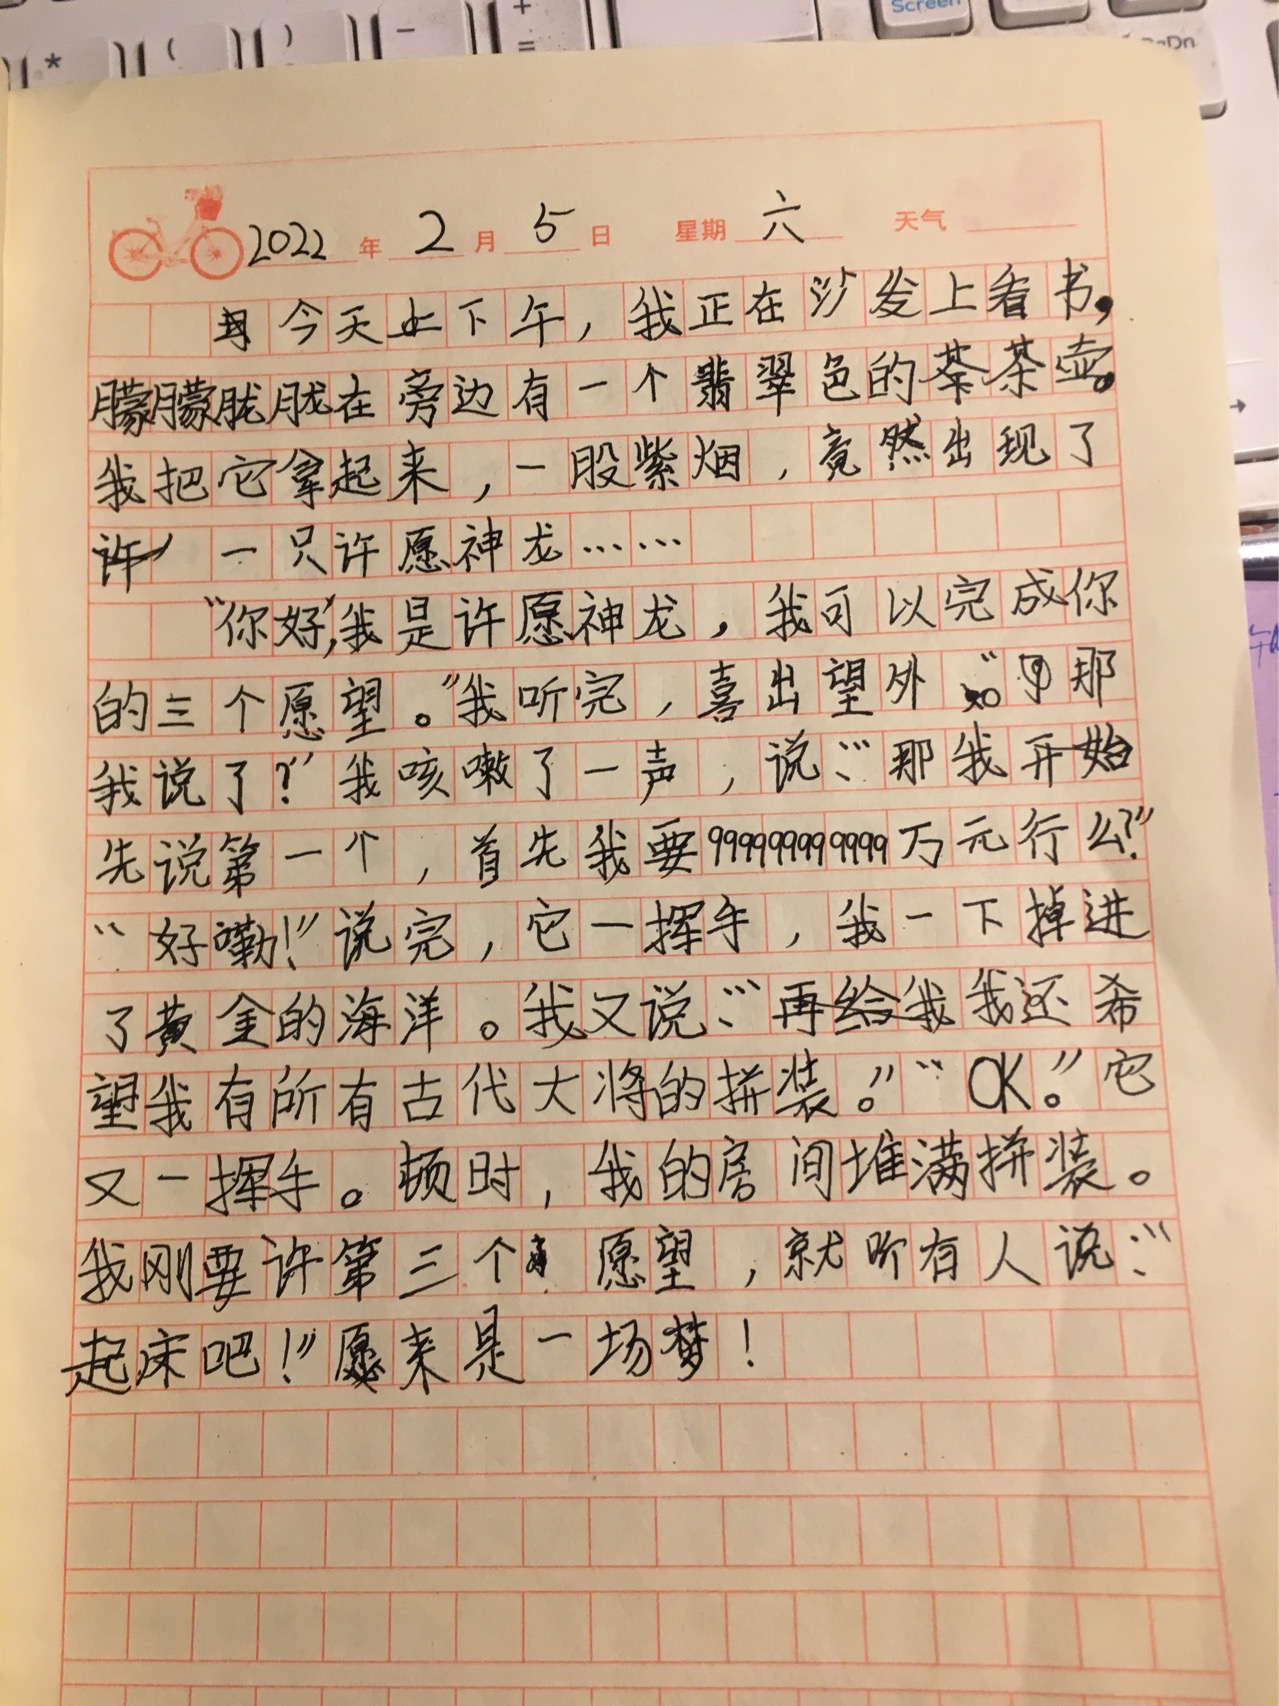 2022 年 2 月 5 日 星期 六 天气
今天下午，我正在沙发上看书，
朦朦胧胧在旁边有一个翡翠色的茶壶。
我把它拿起来，一股紫烟，竟然出现了
一只许愿神龙……
“你好，我是许愿神龙，我可以完成你
的三个愿望。”我听完，喜出望外。“那
我说了？”我咳嗽了一声，说：“那我
先说第一个，首先我要999999999999万元行么？”
“好嘞！”说完，它一挥手，我一下掉进
了黄金的海洋。我又说：“我还希
望我有所有古代大将的拼装。”“OK。”它
又一挥手。顿时，我的房间堆满拼装。
我刚要许第三个愿望，就听有人说：“
起床吧！”愿来是一场梦！
Screen
PgDn